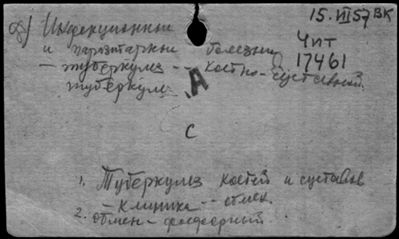 15. III 57 ВК
Инфекционные
и паразитарные болезни
Чит
17461
– туберкулез -- костно-суставный.
туберкул.
А
С
1. Туберкулез костей и суставов
– клиника -- обмен.
2. обмен – фосфорный.